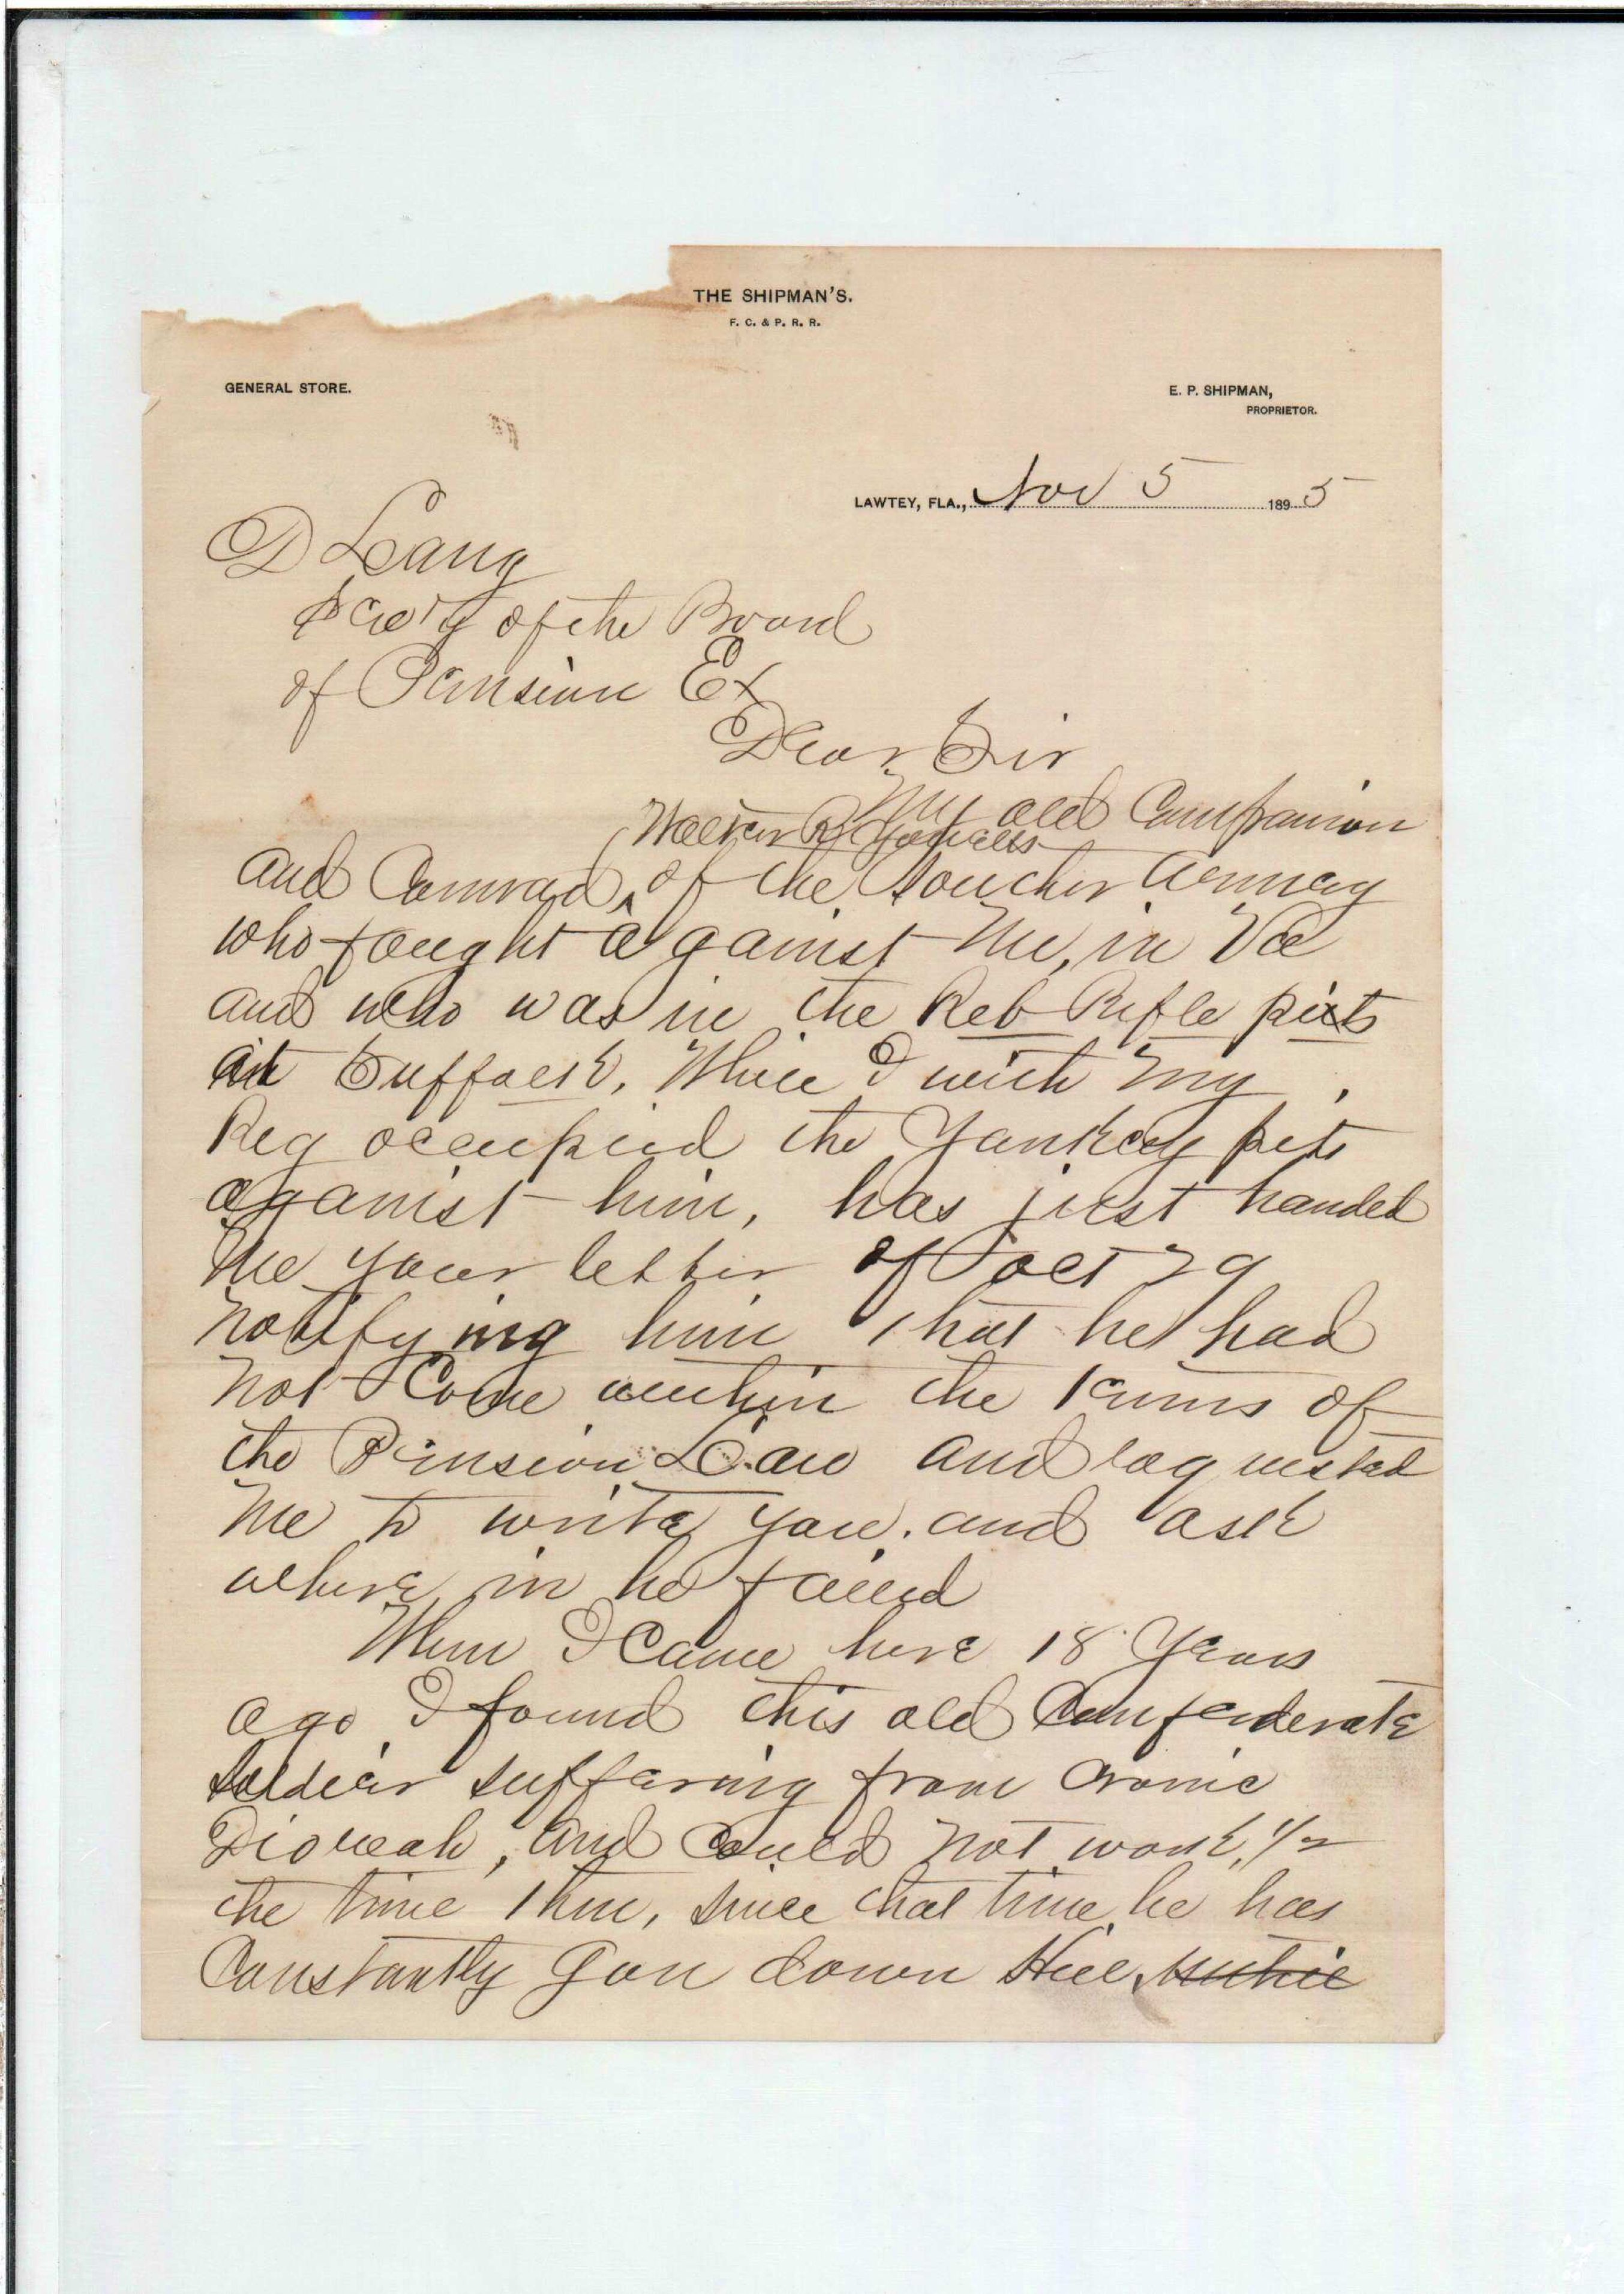 THE SHIPMAN'S.
F. C. & P. R. R.
GENERAL STORE.
E. P. SHIPMAN,
PROPRIETOR.
LAWTEY, FLA., Nov 5 1895
D Lang
Secr'y of the Board
of Pension Ex
Dear Sir
My old Companion
Walker R
and Comrad of the Souther Armey
who fought against me, in Va
and who was in the Reb Rifle pits
at Suffolk, While I with my
Reg occupied the Yankey pits
against him, has just handed
me your letter of Oct 29
notifying him that he had
not Come within the terms of
the Pension Law and requested
me to write you. and ask
where in he failed
When I Came here 18 Years
ago, I found this old Confederate
Soldier suffering from Cronic
Dioreah, and Could not work, 1/2
the time then, since that time he has
Constantly Gon down Hill,